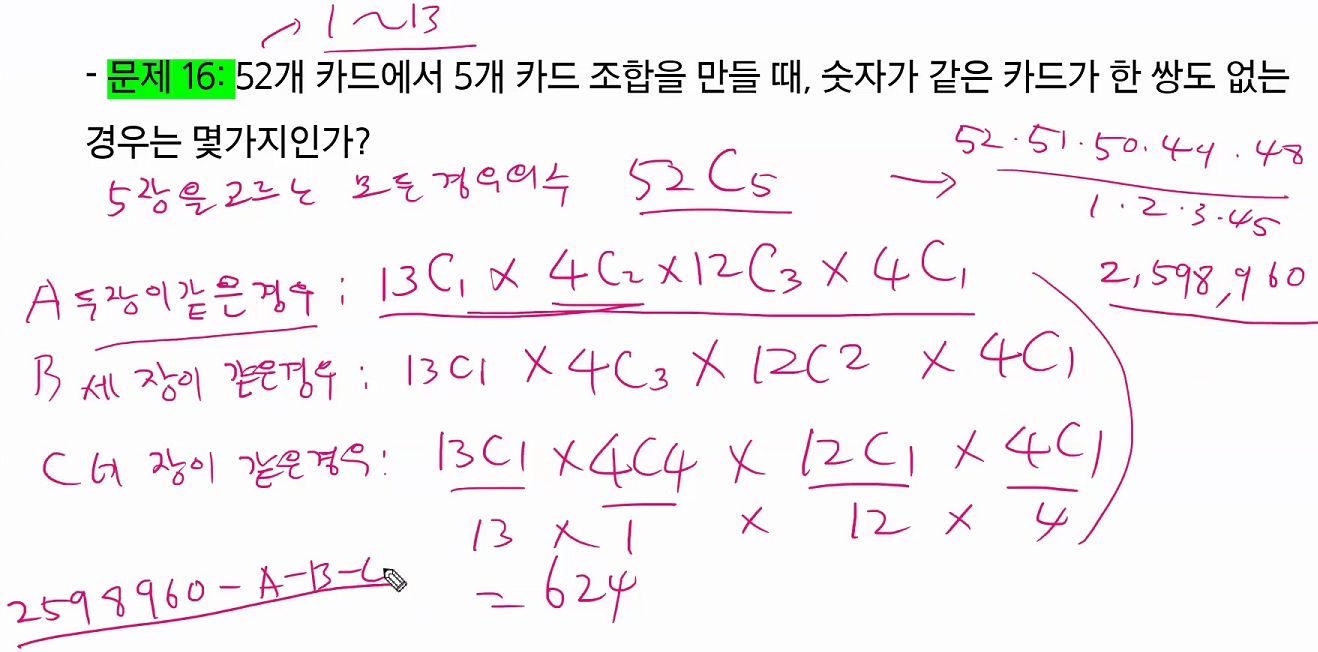 1~13
- 문제 16: 52개 카드에서 5개 카드 조합을 만들 때, 숫자가 같은 카드가 한 쌍도 없는
경우는 몇가지인가?
5장을 고르는 모든 경우의수 52C5 → 52·51·50·49·48
1·2·3·45
2,598,960
A 두장이같은경우 : 13C1 × 4C2 × 12C3 × 4C1
B 세 장이 같은경우 : 13C1 × 4C3 × 12C2 × 4C1
C 네 장이 같은경우 : 13C1 × 4C4 × 12C1 × 4C1
13 × 1 × 12 × 4
= 624
2598960 - A - B - C